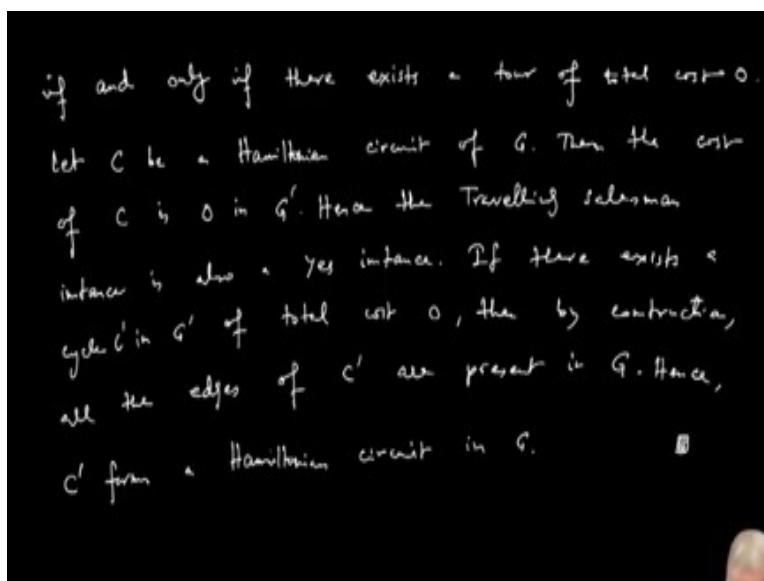 if and only if there exists a tour of total cost 0.
Let C be a Hamiltonian circuit of G. Then the cost
of C is 0 in G'. Hence the Travelling salesman
intance is also a Yes intance. If there exists a
cycle C' in G' of total cost 0, then by contruction,
all the edges of C' are present in G. Hence,
C' forms a Hamiltonian circuit in G.